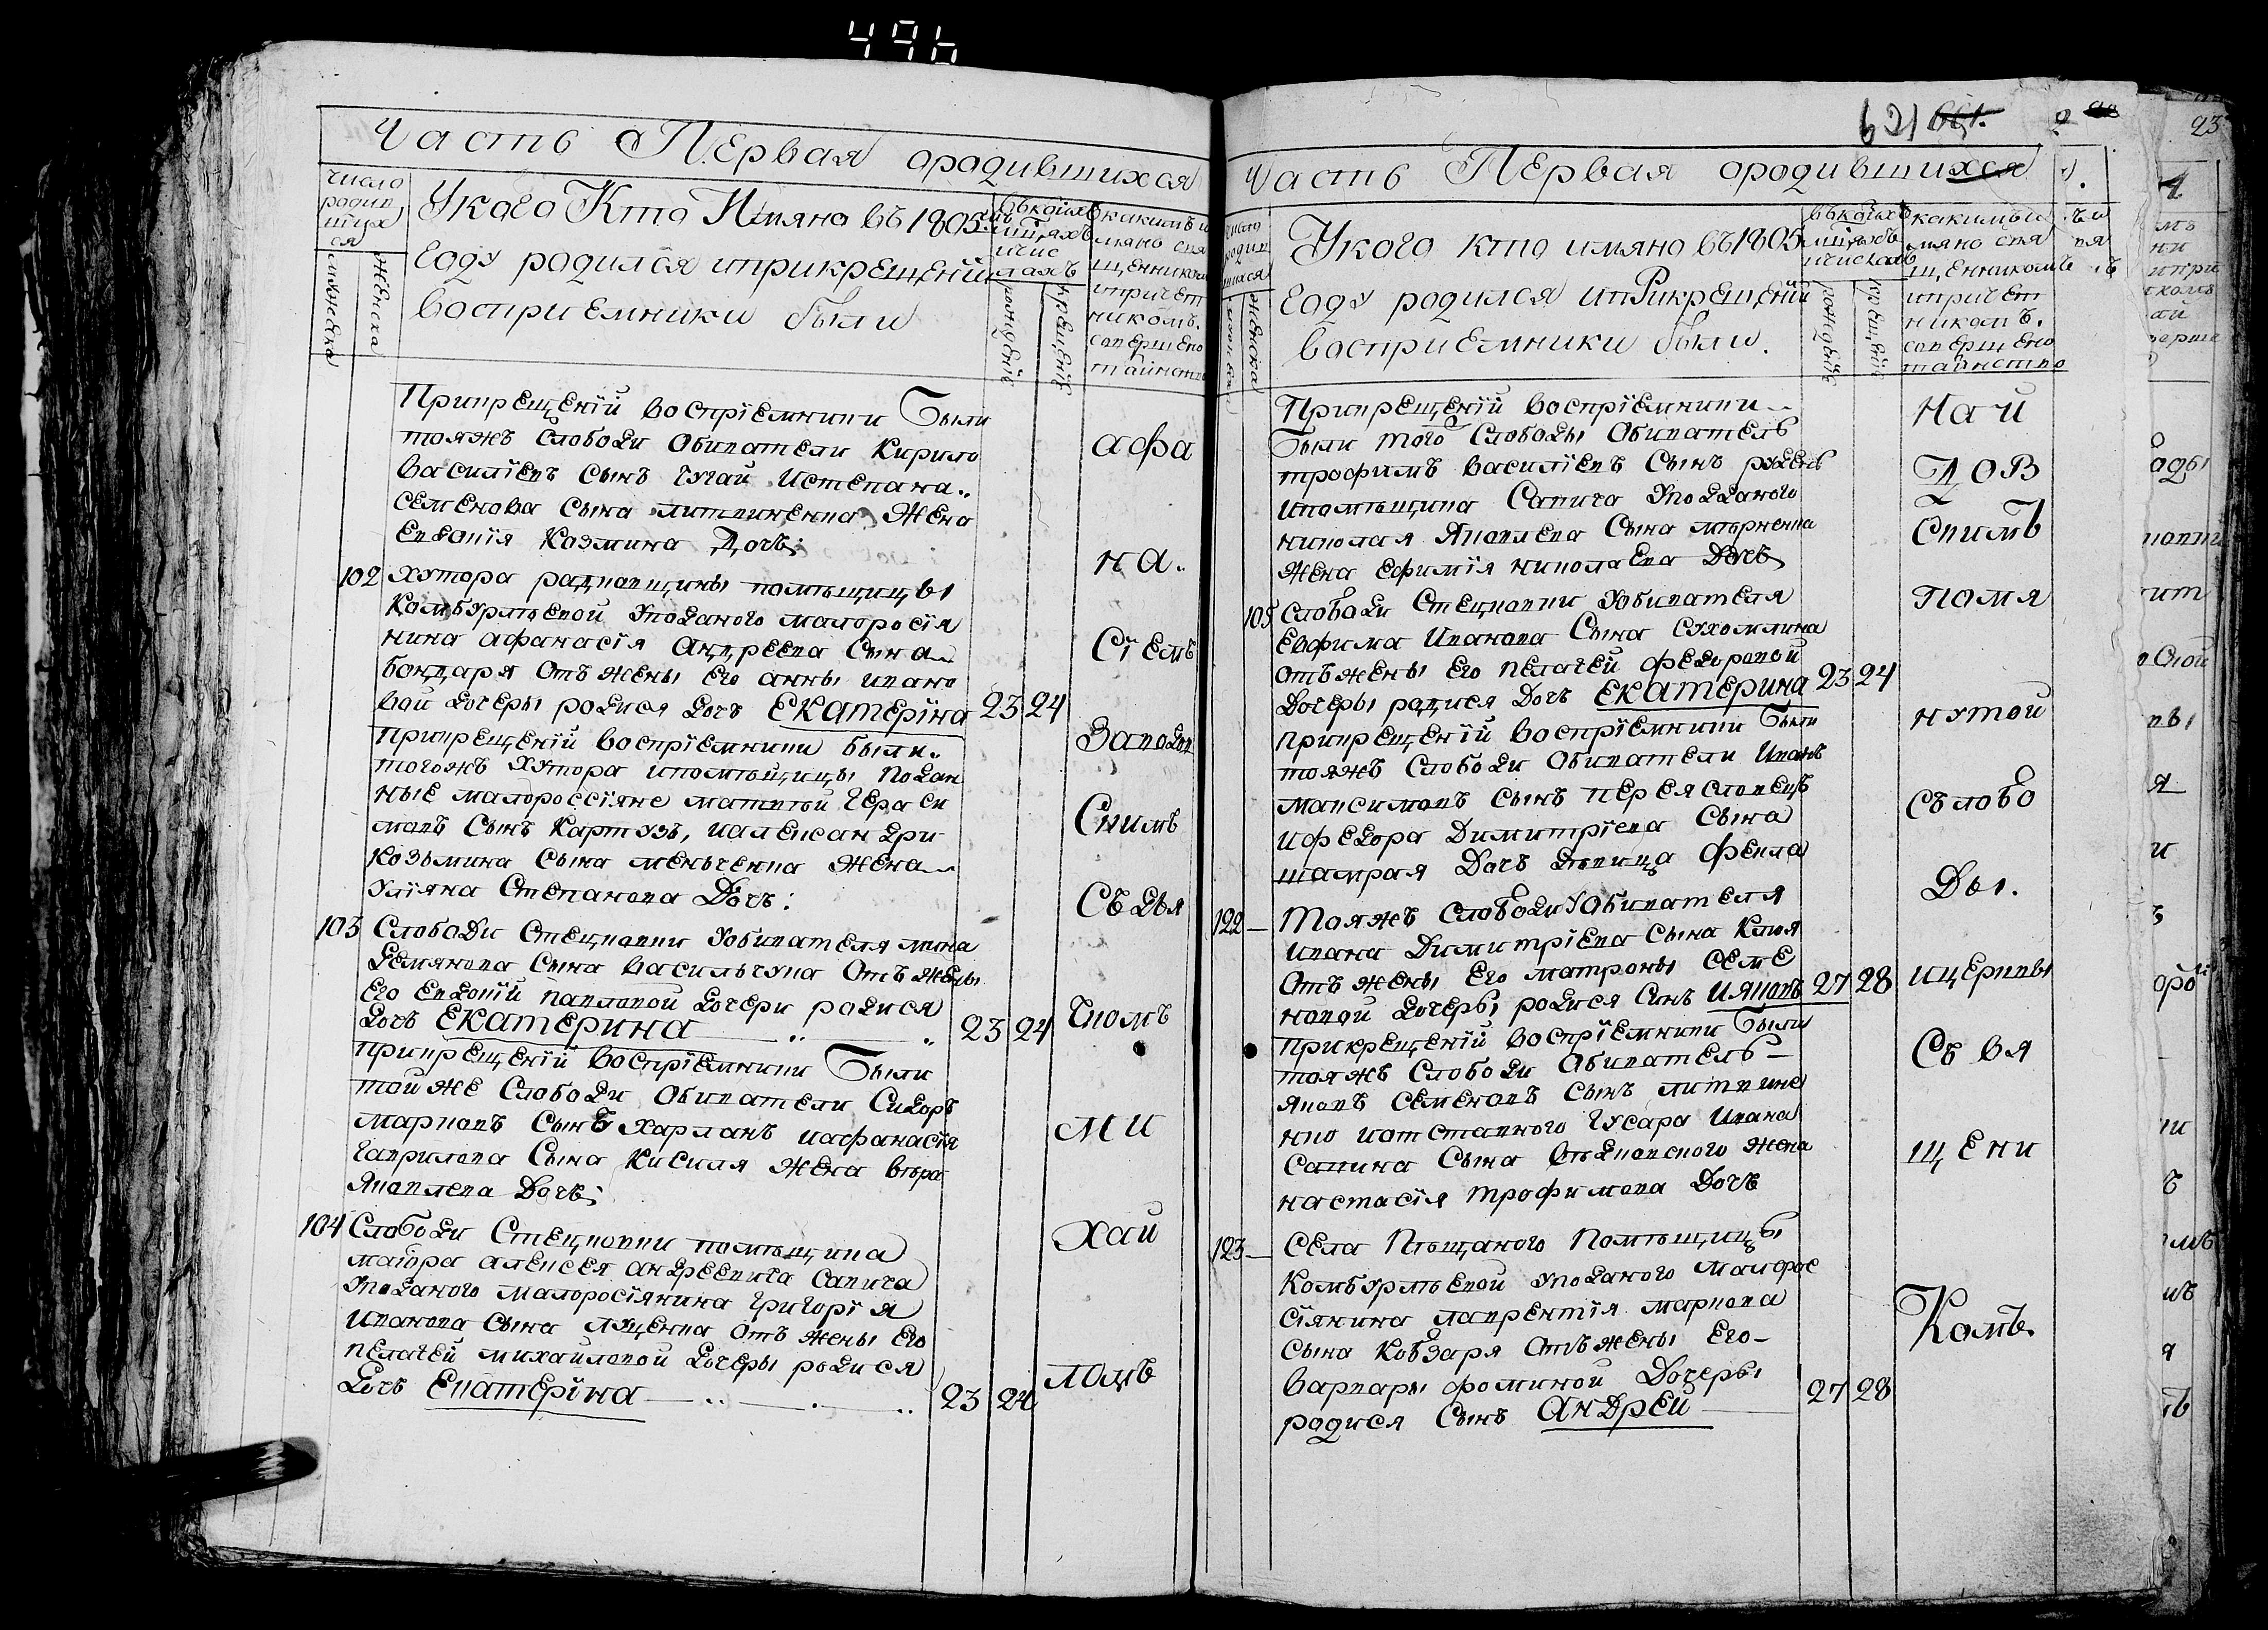 496
Часть Первая ородившихся
число родив шихся
мужеска
женска
Укого Кто Имяно въ 1805:мъ
Году родился иприкрещенїи
восприемники были
въкоихъ мцахъ ичислахъ
рожденїе
крещенїе
какимъ имяно священникомъ ипричетникомъ. совершено таинство
Прикрещенїи воспрїемники были
тояжъ слободи обиватели Кирило
васильевъ сынъ Чугай Истепана
семенова сына литвиненка жена
Евдокїя Козмина Дочь;
102 хутора радковщины помѣщицы
Комбурлѣевой уподаного малоросїя
нина афанасїя андреева сына
бондаря отъ жены его анны ивано
вой дочеры родися дочь Екатерїна 23 24
Прикрещенїи воспрїемники были
тогожъ хутора ипомѣщицы подан
ные малороссїяне матвѣй Гераси
мовъ сынъ Картузъ, иалександри
козьмина сына меньченка жена
улїяна Степанова Дочь:
103 Слободи Стецковки уобивателя мина
демянова сына васильчука отъ жены
его Евдокїи павловой дочери родися
дочь Екатерина 23 24
прикрещенїи воспрїемники были
тойже слободи обиватели Сидоръ
марковъ сынъ харланъ иафанасїя
гаврилова сына Кисиля жена вѣра
Яковлева Дочь;
104 Слободи Стецковки помѣщика
маїора алексея андреевича Савича
уподаного малоросїянина григорїя
иванова сына луценка отъ жены его
пелагеи михайловой дочеры родися
дочь Екатерїна 23 24
афа
на.
Сїемъ
Заповѣд
Скимъ
Съ Дья
Чкомъ
ми
хай
ломъ
621
Часть Первая ородившихся
число родившихся
женска
Укого кто имяно въ 1805
Году родился иприкрещенїи
восприемники были.
въкоихъ мцахъ ичислахъ
рожденїе
крещенїе
какимъ имяно священникомъ ипричетникомъ. совершено таинство
Прикрещенїи воспрїемники
были того слободы обиватель
трофимъ василїевъ сынъ руденъ
ипомѣщика Савича уподаного
николая Яковлева сына
жена ефимїя николаева Дочь
105 слободи Стецковки уобивателя
Евфима Иванова сына сухомлина
отъ жены его пелагеи федоровой
дочеры родися дочь Екатерина 23 24
прикрещенїи воспрїемники были
тояжъ слободи обиватели Иванъ
максимовъ сынъ переяславецъ
ифедора Димитрїева сына
шамрая дочь дѣвица фекла
122 тояжъ слободи уобивателя
ивана Димитрїева сына Клюя
отъ жены его матроны семе
новой дочеры родися синъ Ияковъ 27 28
прикрещенїи воспрїемники были
тояжъ слободи обиватель
яковъ семеновъ сынъ литвине
нко иотставного гусара ивана
Савина сына жена
настасїя трофимова Дочь
123 Села Пѣщаного Помѣщицы
Комбурлѣевой уподаного малорос
сїянина лаврентїя маркова
сына кобзаря отъ жены его
варвары фоминой Дочеры
родися сынъ Андрей 27 28
Най
ДОВ
Скимъ
пома
нутой
слобо
Ды.
ицеркви
Съ вя
щени
Комъ.
23